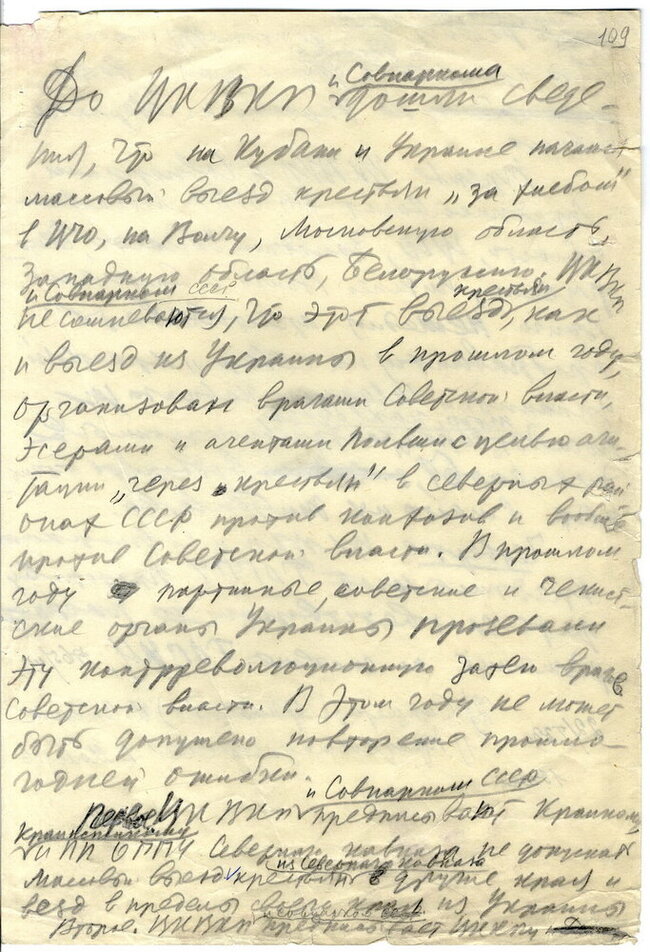 109
До ЦК ВКП и Совнаркома дошли сведе-
ния, что на Кубани и Украине начался
массовый выезд крестьян „за хлебом"
в ЦЧО, на Волгу, Московскую область,
Западную область, Белоруссию. ЦК ВКП
и Совнарком СССР
не сомневаются, что этот выезд крестьян, как
и выезд из Украины в прошлом году,
организован врагами Советской власти,
эсерами и агентами Польши с целью аги-
тации „через крестьян" в северных рай-
онах СССР против колхозов и вообще
против Советской власти. В прошлом
году партийные, советские и чекист-
ские органы Украины прозевали
эту контрреволюционную затею врагов
Советской власти. В этом году не может
быть допущено повторение прошло-
годней ошибки.
Первое. ЦК ВКП и Совнарком СССР предписывают Крайкому,
Крайисполкому
и ПП ОГПУ Северного Кавказа не допускать
массовый выезд крестьян из Северного Кавказа в другие края и
въезд в пределы края из Украины
Второе. ЦК ВКП и Совнарком СССР предписывают ЦК КП